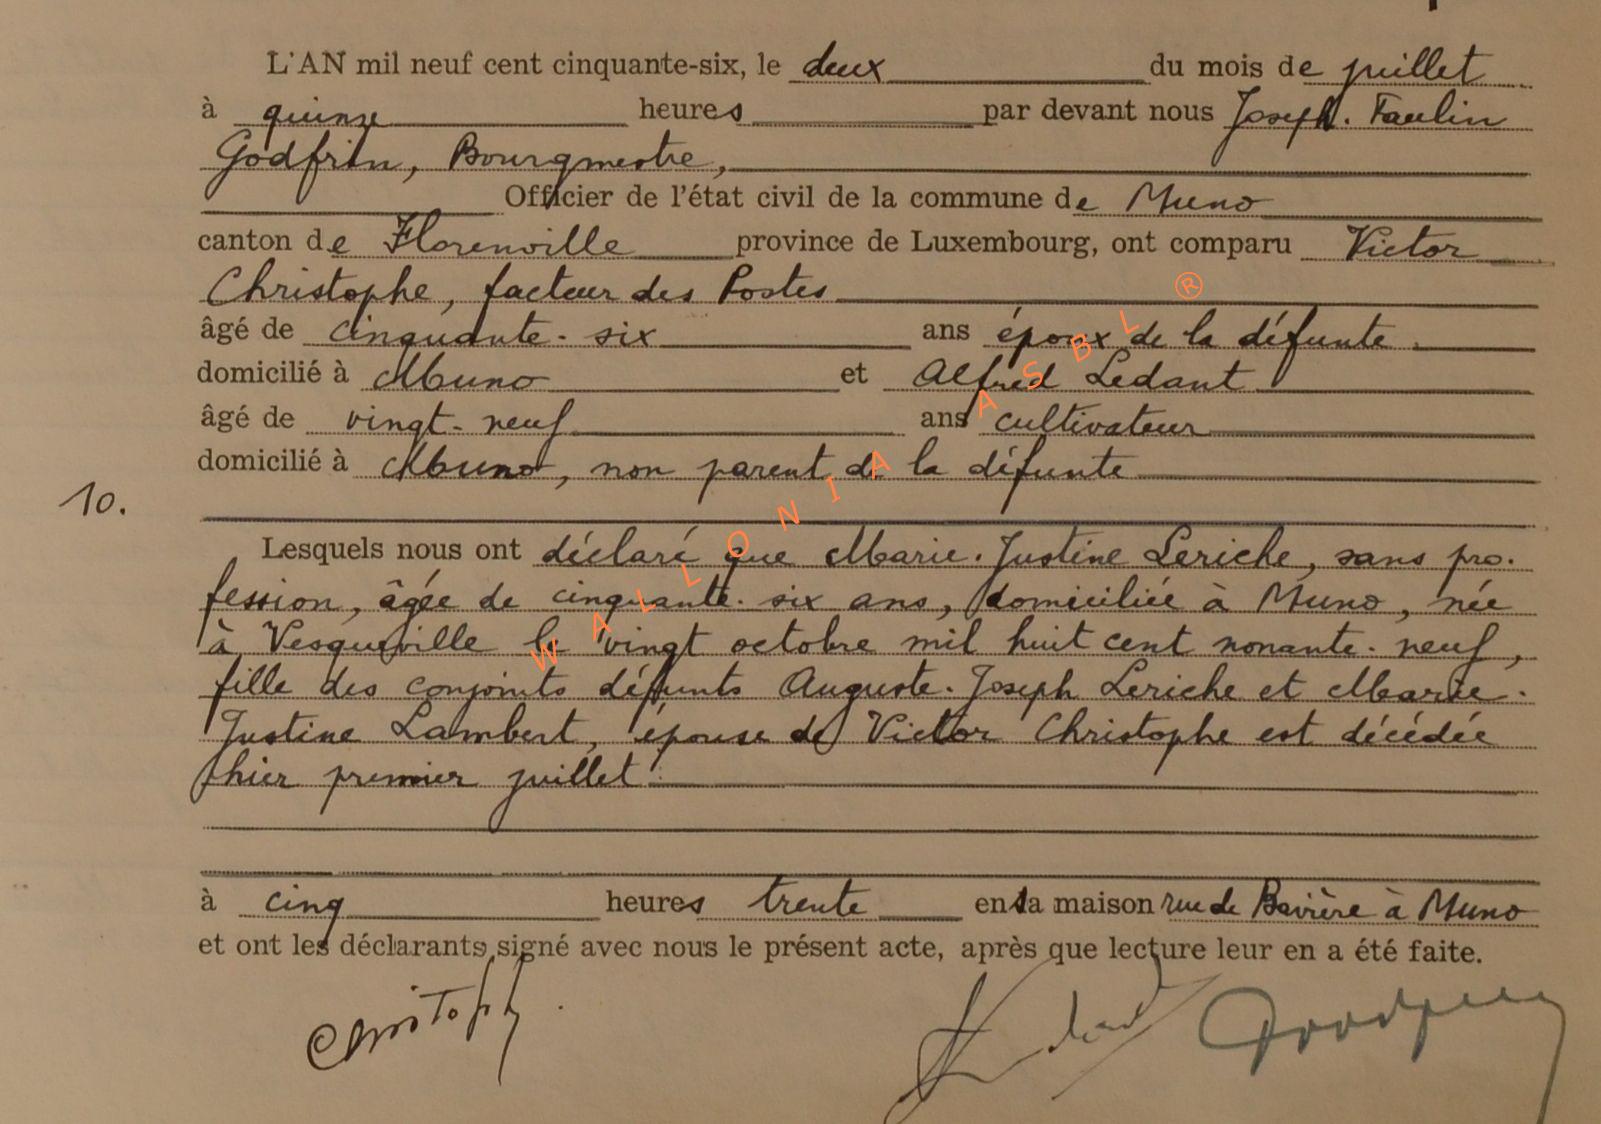 L'AN mil neuf cent cinquante-six, le deux du mois de juillet
à quinze heures par devant nous Joseph. Faulin
Godfrin, Bourgmestre,
Officier de l'état civil de la commune de Muno
canton de Florenville province de Luxembourg, ont comparu Victor
Christophe, facteur des Postes
âgé de cinquante-six ans époux de la défunte.
domicilié à Muno et Alfred Ledant
âgé de vingt-neuf ans cultivateur
domicilié à Muno, non parent de la défunte
10.
Lesquels nous ont déclaré que Marie-Justine Leriche, sans pro-
fession, âgée de cinquante-six ans, domiciliée à Muno, née
à Vesqueville le vingt octobre mil huit cent nonante-neuf,
fille des conjoints défunts Auguste-Joseph Leriche et Marie-
Justine Lambert, épouse de Victor Christophe est décédée
hier premier juillet.
à cinq heures trente en sa maison rue de Bavière à Muno
et ont les déclarants signé avec nous le présent acte, après que lecture leur en a été faite.
Christophe
WALLONIA ASBL ®